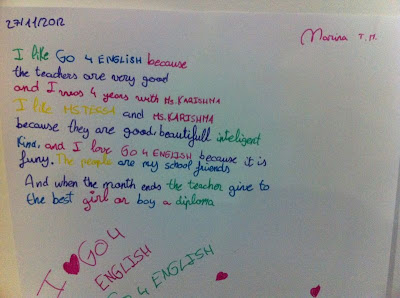 27/11/2012
Marina T. M.
I like Go 4 ENGLISH because
the teachers are very good
and I was 4 years with Ms. KARISHMA
I like MS TESSA and Ms. KARISHMA
because they are good, beautifull inteligent
Kind, and I love Go 4 ENGLISH because it is
funy. The people are my school friends
And when the month ends the teacher give to
the best girl or boy a diploma
I GO 4
ENGLISH
GO 4 ENGLISH